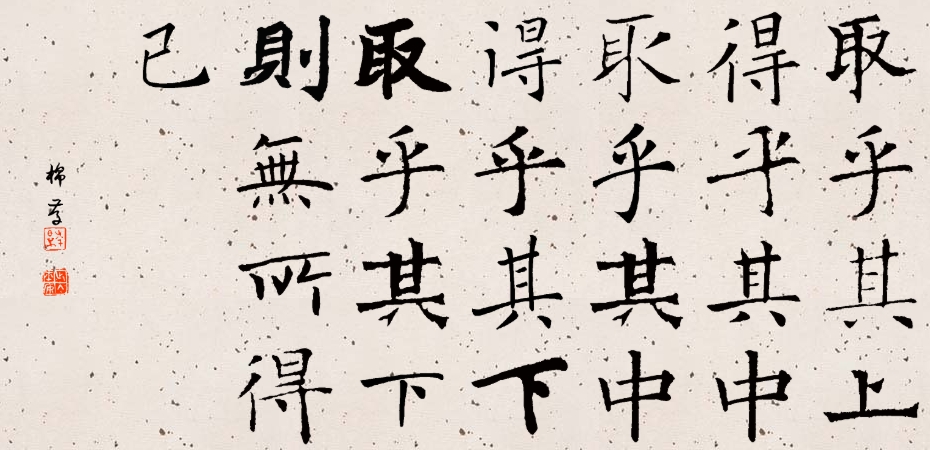 取乎其上
得乎其中
取乎其中
得乎其下
取乎其下
則無所得
已